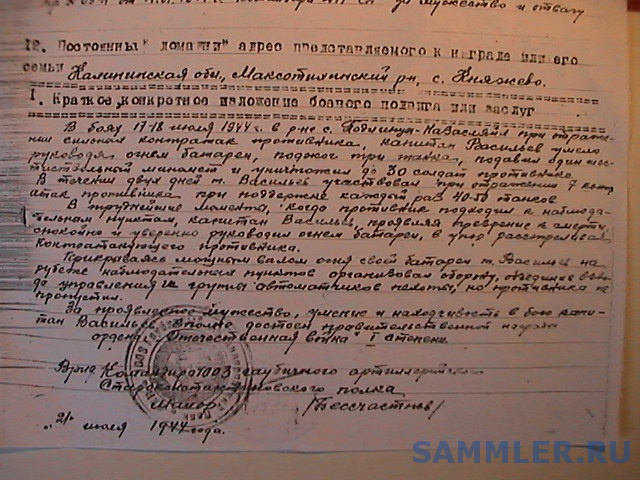 мужество и отвагу
12. Постоянный домашний адрес представляемого к награде или его
семьи Калининская обл., Максотихинский рн, с. Княжево.
I. Краткое, конкретное изложение боевого подвига или заслуг
В боях 17-18 июля 1944 г. в р-не с. при отраже-
нии сильных контратак противника, капитан Васильев умело
руководя огнем батареи, поджог три танка, подавил один шес-
тиствольный миномет и уничтожил до 30 солдат противника.
В течении двух дней т. Васильев участвовал при отражении 7 конт
атак противника при поддержке каждый раз 40-50 танков.
В труднейшие моменты, когда противник подходил к наблюда-
тельным пунктам, капитан Васильев, проявляя презрение к смерти,
спокойно и уверенно руководил огнем батареи, в упор расстреливая
контратакующего противника.
Прикрываясь мощным валом огня своей батареи т. Васильев на
рубеже наблюдательных пунктов организовал оборону, объединив взво-
да управления и группы автоматчиков пехоты, но противника не
пропустил.
За проявленное мужество, умение и находчивость в бою капи-
тан Васильев вполне достоин правительственной награды
ордена "Отечественная война" I степени.
Врид Командира 1003 гаубичного артиллерийского
Староконстантиновского полка
Майор /Бессчастнов/
"21" июля 1944 года.
SAMMLER.RU